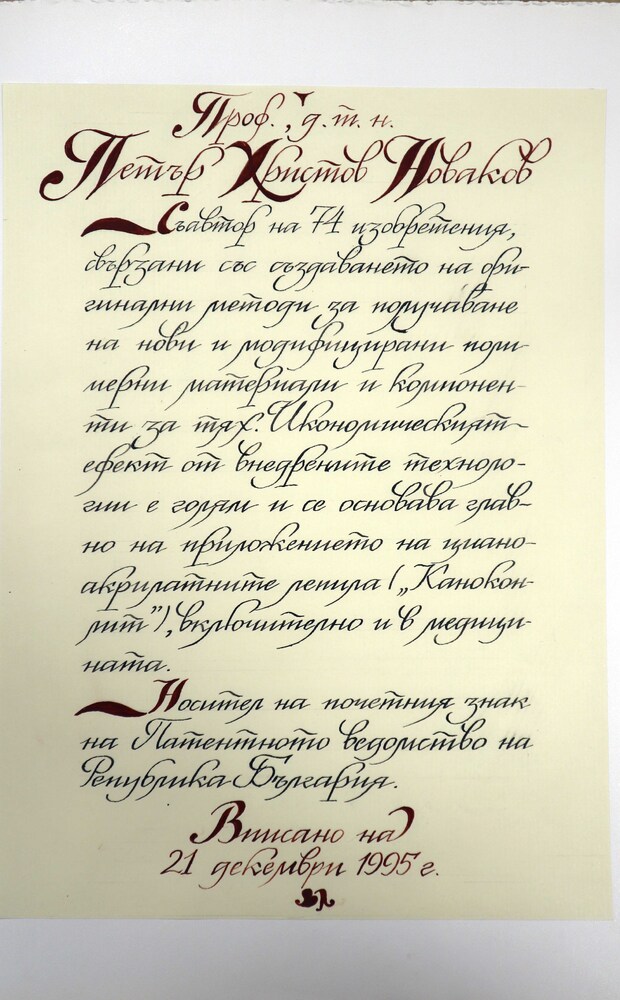 Проф., д. т. н.
Петър Христов Новаков
Съавтор на 74 изобретения,
свързани със създаването на ори-
гинални методи за получаване
на нови и модифицирани поли
мерни материали и компонен-
ти за тях. Икономическият
ефект от внедрените техноло-
гии е голям и се основава глав-
но на приложението на циано-
акрилатните лепила („Канокон-
лит”), включително и в медици-
ната.
Носител на почетния знак
на Патентното ведомство на
Република България.
Вписано на
21 декември 1995 г.